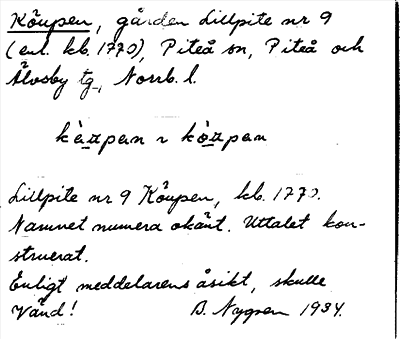 Köupen, gården Lillpite nr 9
(enl. kb. 1770), Piteå sn, Piteå och
Älvsby tg, Norrb. l.
Lillpite nr 9 Köupen, kb. 1770.
Namnet numera okänt. Uttalet kon-
struerat.
Enligt meddelarens åsikt, skulle
Vänd! B. Nygren 1934.